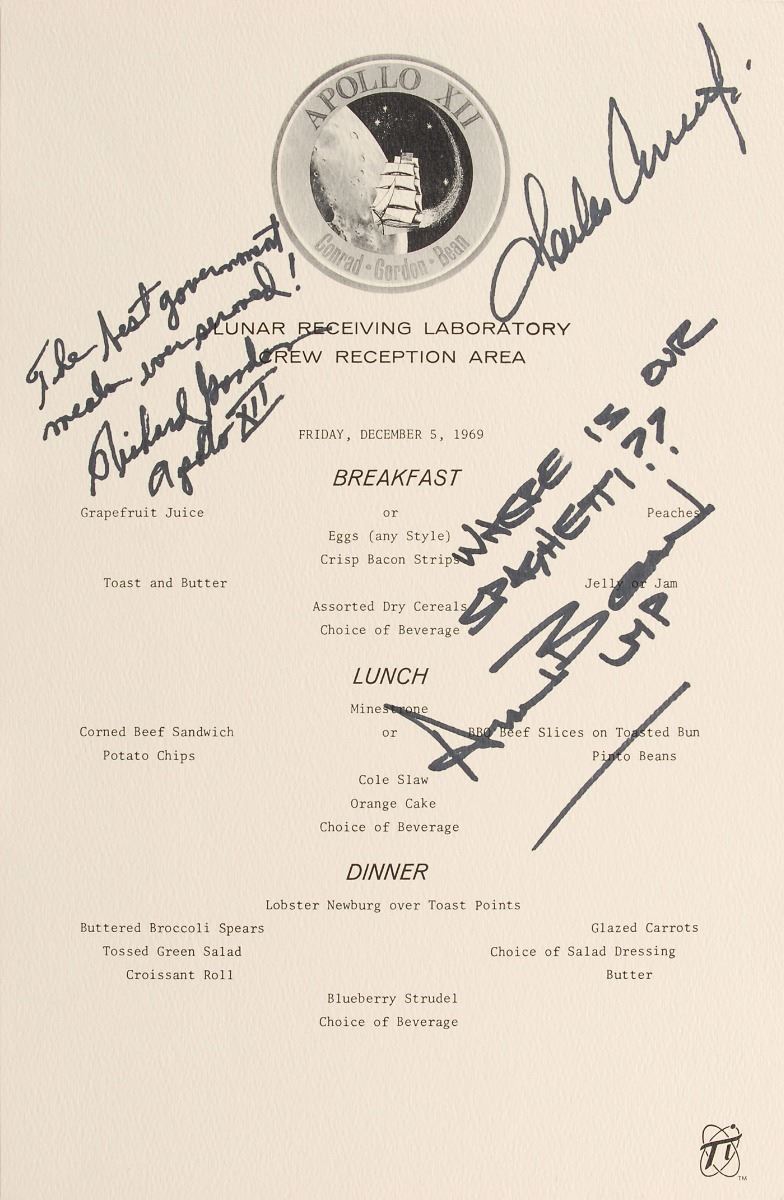 APOLLO XII
Conrad · Gordon · Bean
Charles Conrad Jr.
The best government
meals ever served!
Richard Gordon
Apollo XII
LUNAR RECEIVING LABORATORY
CREW RECEPTION AREA
WHERE IS OUR
SPAGHETTI??
Alan Bean
LMP
FRIDAY, DECEMBER 5, 1969
BREAKFAST
Grapefruit Juice or Peaches
Eggs (any Style)
Crisp Bacon Strips
Toast and Butter Jelly or Jam
Assorted Dry Cereals
Choice of Beverage
LUNCH
Minestrone
Corned Beef Sandwich or BBQ Beef Slices on Toasted Bun
Potato Chips Pinto Beans
Cole Slaw
Orange Cake
Choice of Beverage
DINNER
Lobster Newburg over Toast Points
Buttered Broccoli Spears Glazed Carrots
Tossed Green Salad Choice of Salad Dressing
Croissant Roll Butter
Blueberry Strudel
Choice of Beverage
TI
TM